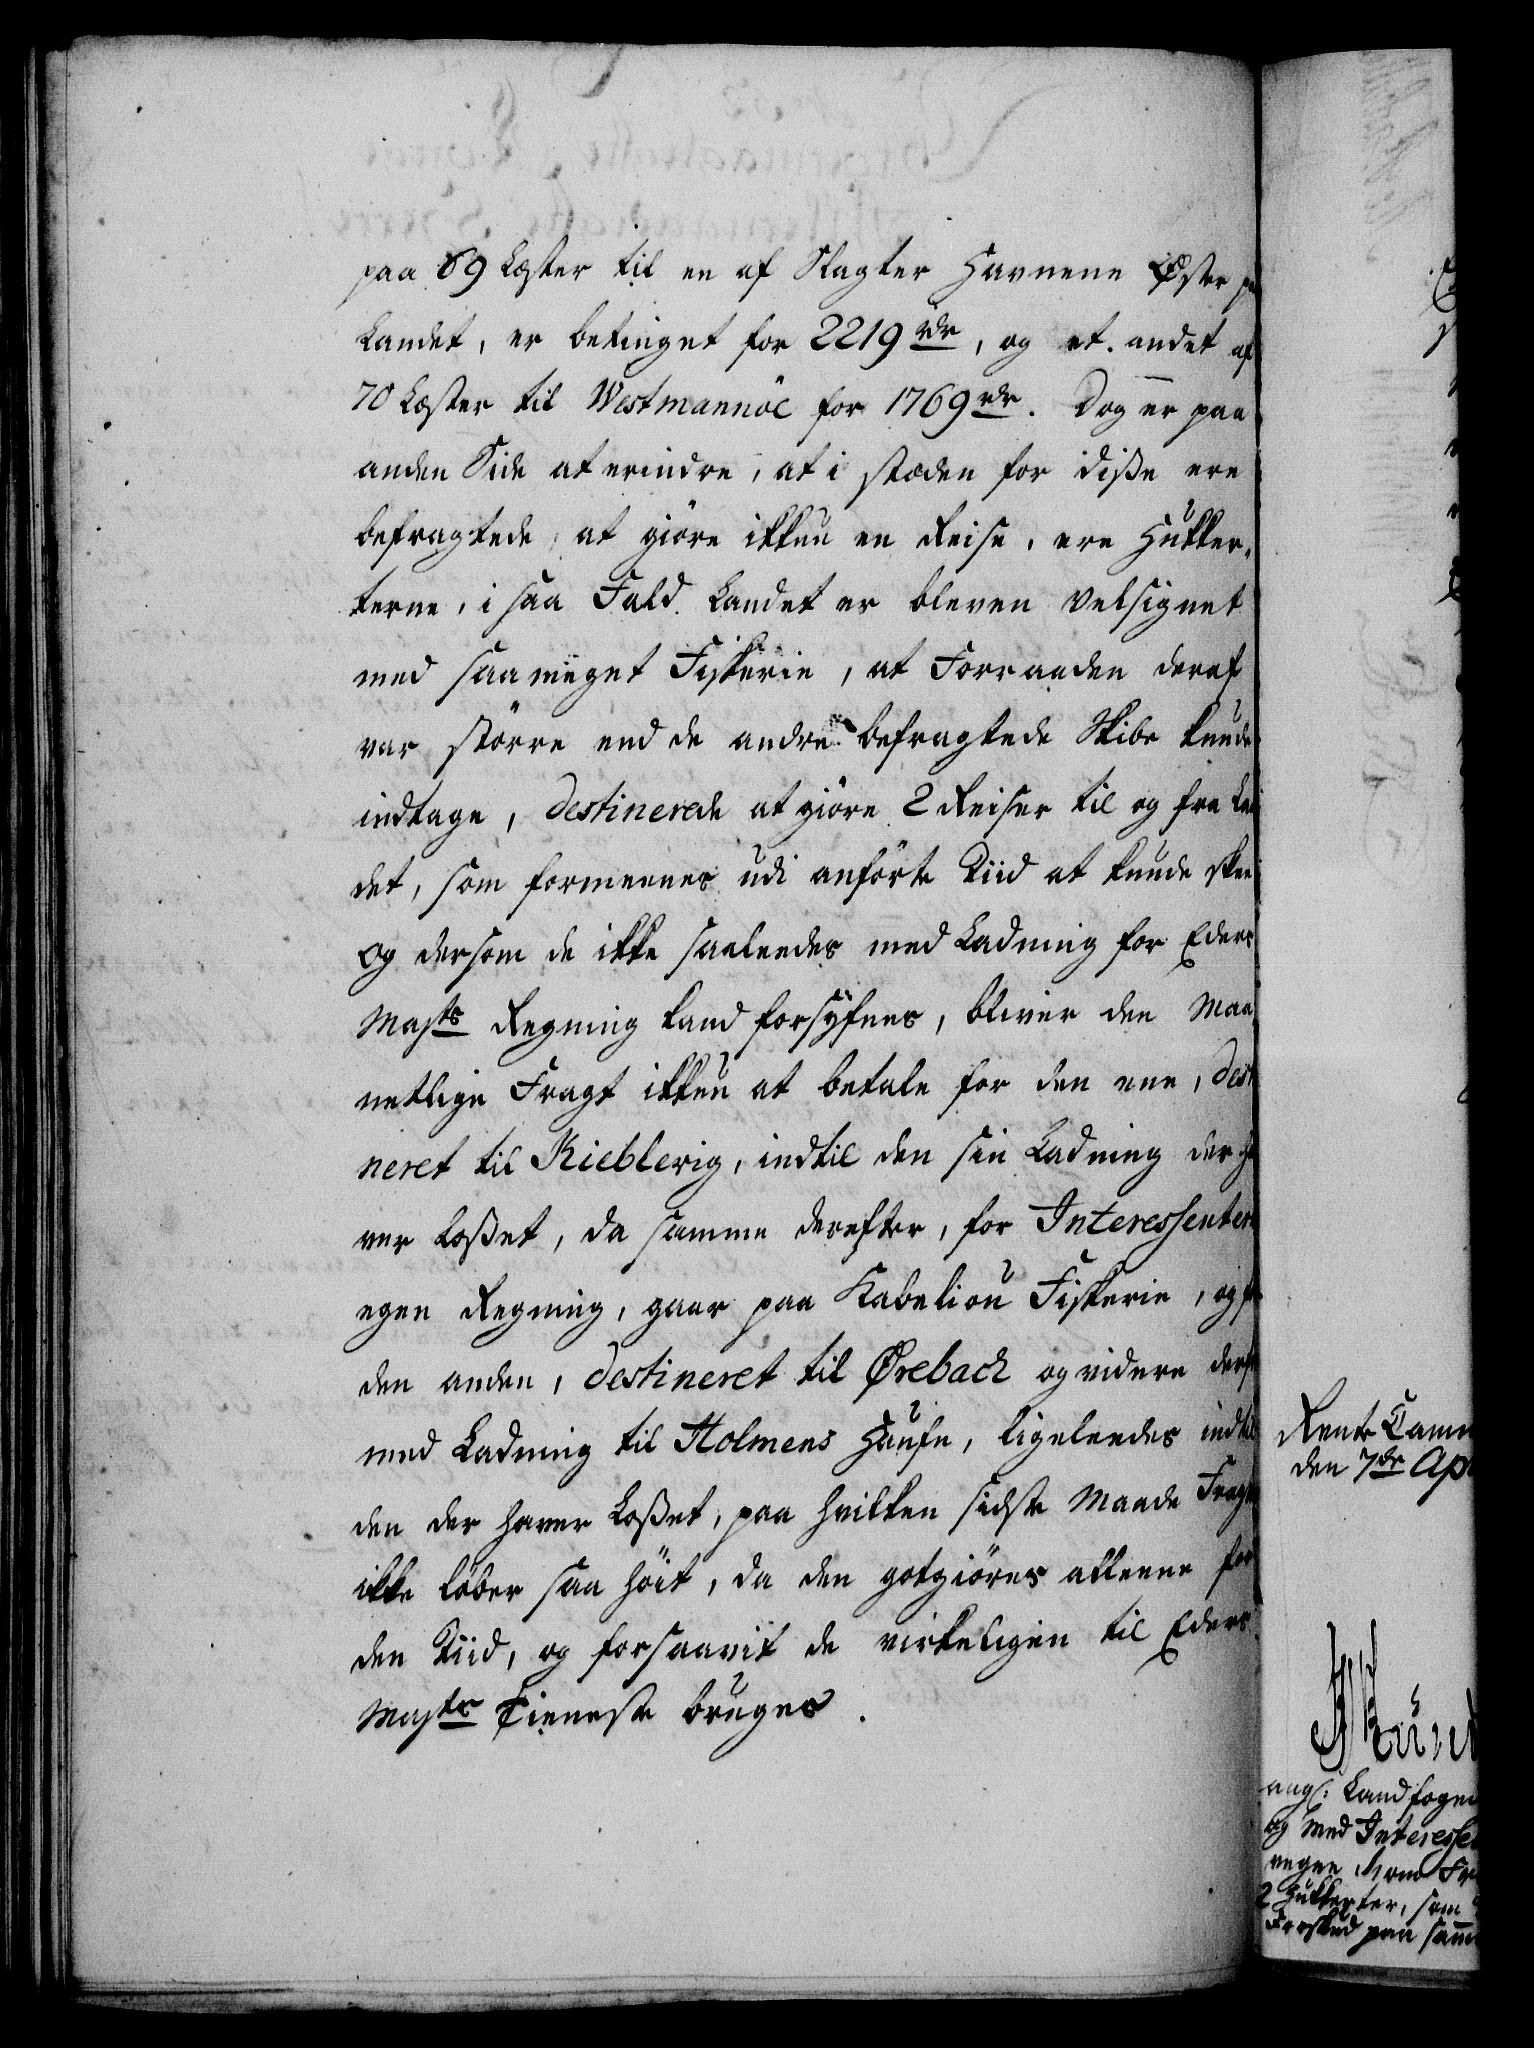 paa 69 Læster til en af Slagter Havnene Øster p
Landet, er betinget for 2219 rdr, og et andet af
70 Læster til Westmannöe for 1769 rdr. Dog er paa
anden Side at erindre, at i stæden for disse ere
befragtede, at giöre ikkun en Reise, ere Hukker-
terne, i saa Fald Landet er bleven velsignet
med saa meget Fiskerie, at Forraaden deraf
var större end de andre befragtede Skibe kunde
indtage, destinerede at giöre 2 Reiser til og fra Lan
det, som formeenes udi anförte Tiid at kunde skee
og dersom de ikke saaledes med Ladning for Eders
Majts Regning kand forsÿnes, bliver den Maa
netlige Fragt ikkun at betale for den ene, desti
neret til Kieblevig, indtil den sin Ladning der ha
ver Losset, da samme derefter, for Interessentern
egen Regning, gaar paa Kabeliou Fiskerie, og for
den anden, destineret til Ørebach og videre derfra
med Ladning til Holmens Haufn, ligeleedes indtil
den der haver Losset, paa hvilken sidste Maade Fragten
ikke löber saa höit, da den gotgiöres alleene for
den Tiid, og forsaavit de virkeligen til Eders
Majts Tieneste bruges.
Rente Cam
den 7de Ap
angl: Landfoge
og med Interesse
vegne, om Fr
2 Hukkerter, som
Forskud paa sam